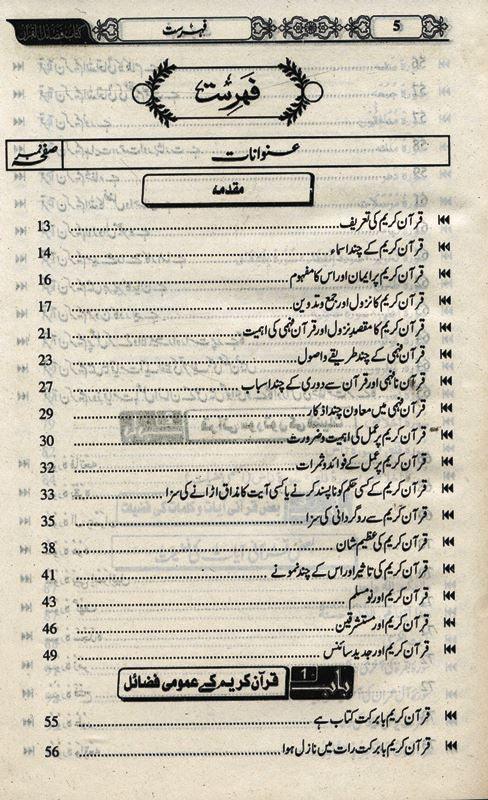 5 فہرست کتاب فضائل القرآن
فہرست
عنوانات صفحہ نمبر
مقدمہ
قرآن کریم کی تعریف 13
قرآن کریم کے چند اسماء 14
قرآن کریم پر ایمان اور اس کا مفہوم 16
قرآن کریم کا نزول اور جمع و تدوین 17
قرآن کریم کا مقصد نزول اور قرآن فہمی کی اہمیت 21
قرآن فہمی کے چند طریقے و اصول 23
قرآن نافہمی اور قرآن سے دوری کے چند اسباب 27
قرآن فہمی میں معاون چند اذکار 29
قرآن کریم پر عمل کی اہمیت و ضرورت 30
قرآن کریم پر عمل کے فوائد و ثمرات 32
قرآن کریم کے کسی حکم کو ناپسند کرنے یا کسی آیت کا مذاق اڑانے کی سزا 33
قرآن کریم سے روگردانی کی سزا 35
قرآن کریم کی عظیم شان 38
قرآن کریم کی تاثیر اور اس کے چند نمونے 41
قرآن کریم اور نو مسلم 43
قرآن کریم اور مستشرقین 46
قرآن کریم اور جدید سائنس 49
باب 1 قرآن کریم کے عمومی فضائل
قرآن کریم بابرکت کتاب ہے 55
قرآن کریم بابرکت رات میں نازل ہوا 56